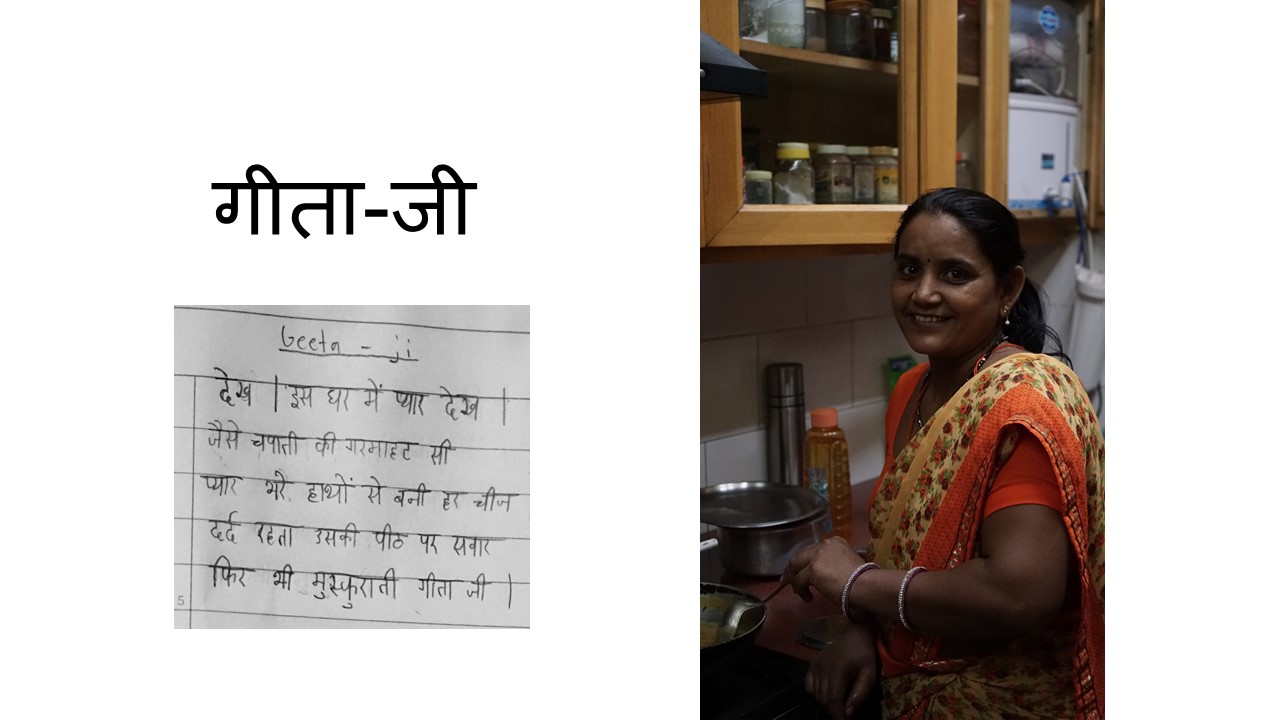 गीता-जी
Geeta - ji
देख | इस घर में प्यार देख |
जैसे चपाती की गरमाहट सी
प्यार भरे हाथों से बनी हर चीज
दर्द रहता उसकी पीठ पर सवार
फिर भी मुस्कुराती गीता जी |
5